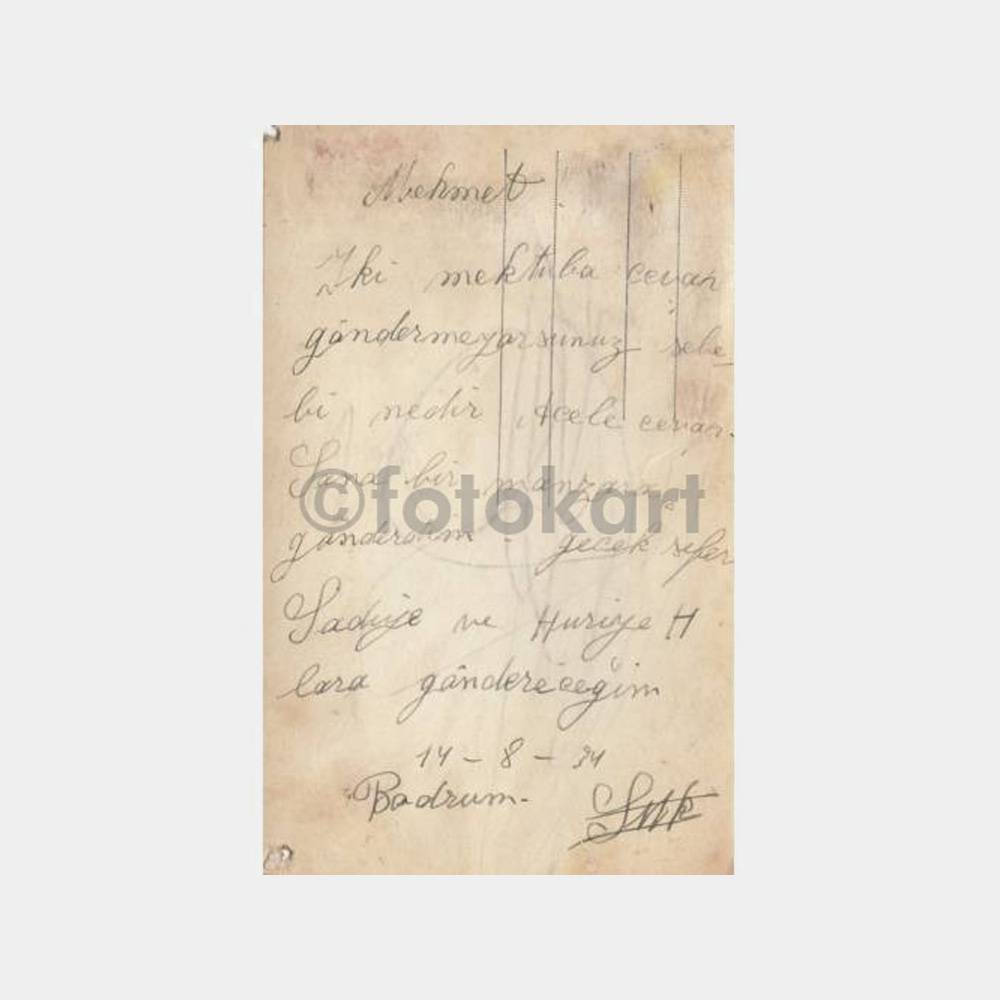 Mehmet
İki mektuba cevap
göndermeyorsunuz sebe_
bi nedir Acele cevap.
Sana bir manzara
gönderdim. gecek sefer
Sadiye ve Huriye H
lara göndereceğim
14 - 8 - 34
Bodrum.
©fotokart